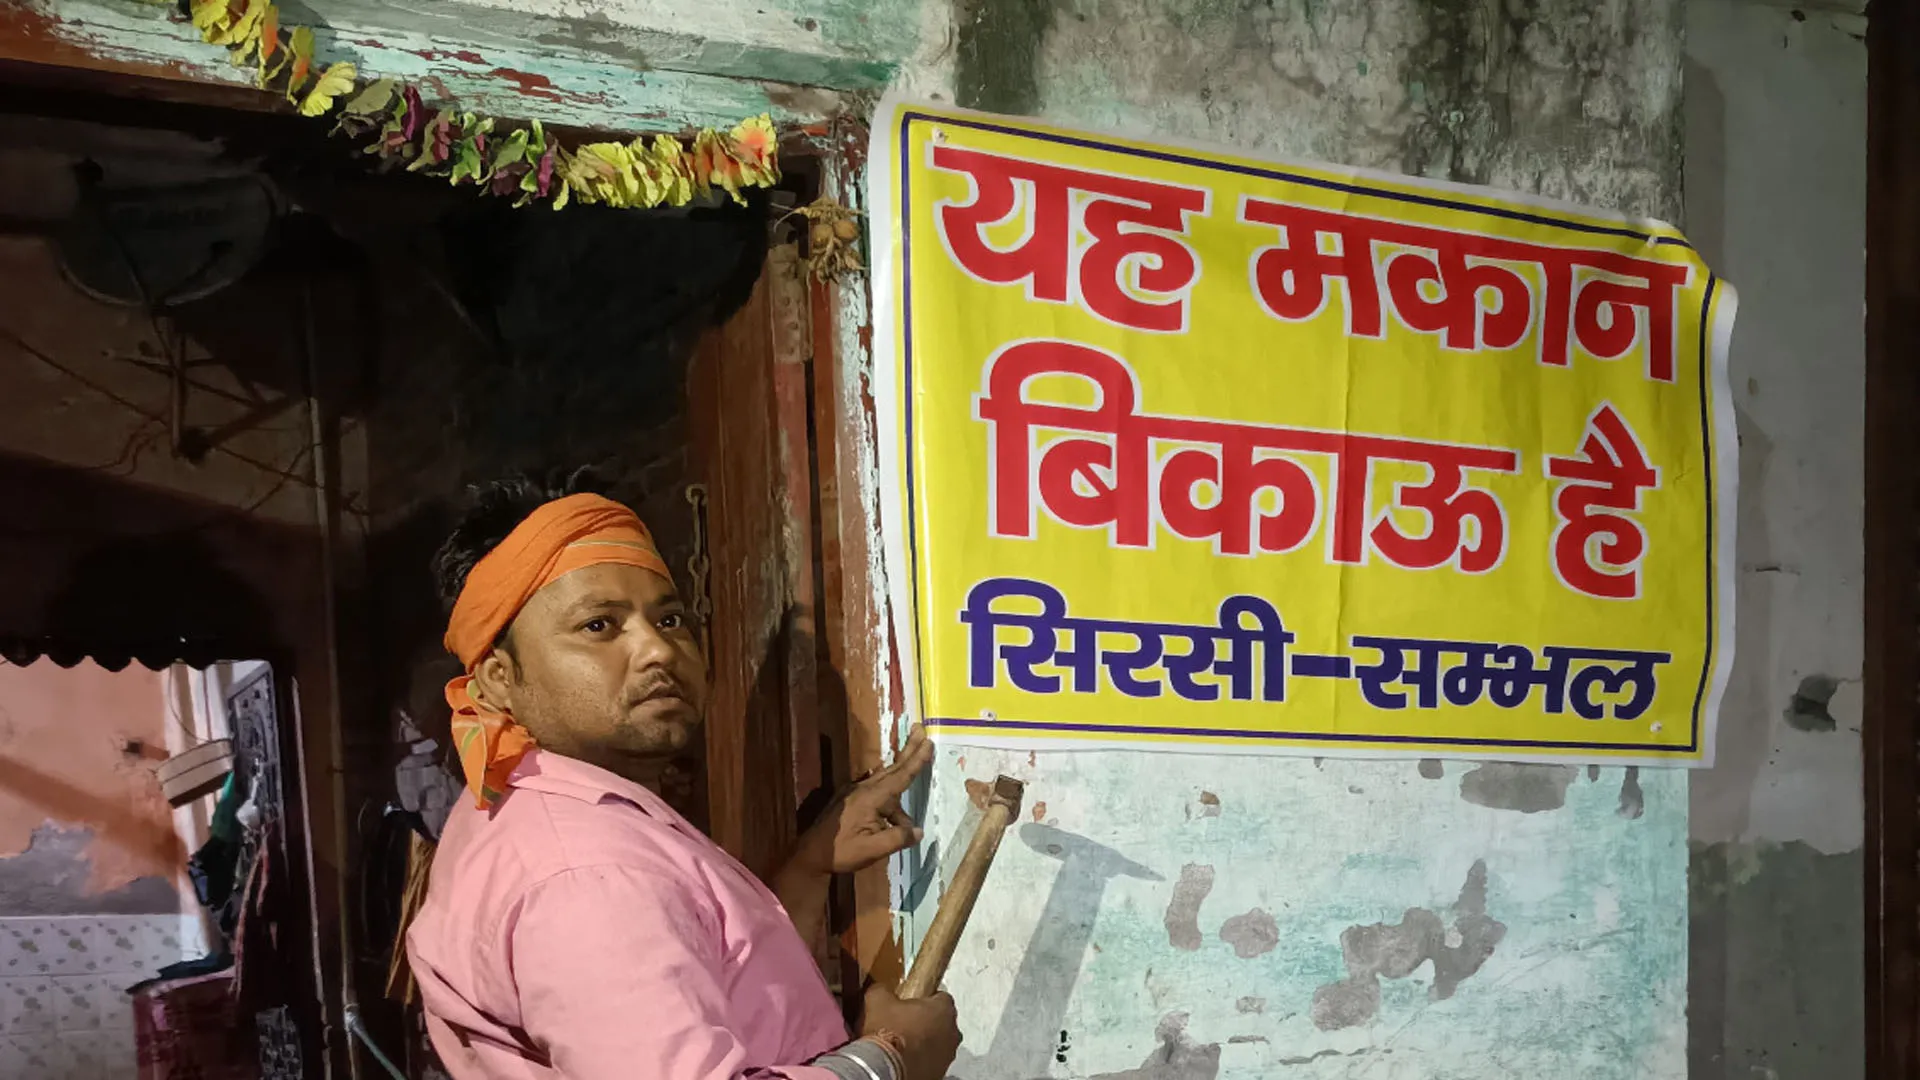 यह मकान
बिकाऊ है
सिरसी-सम्भल